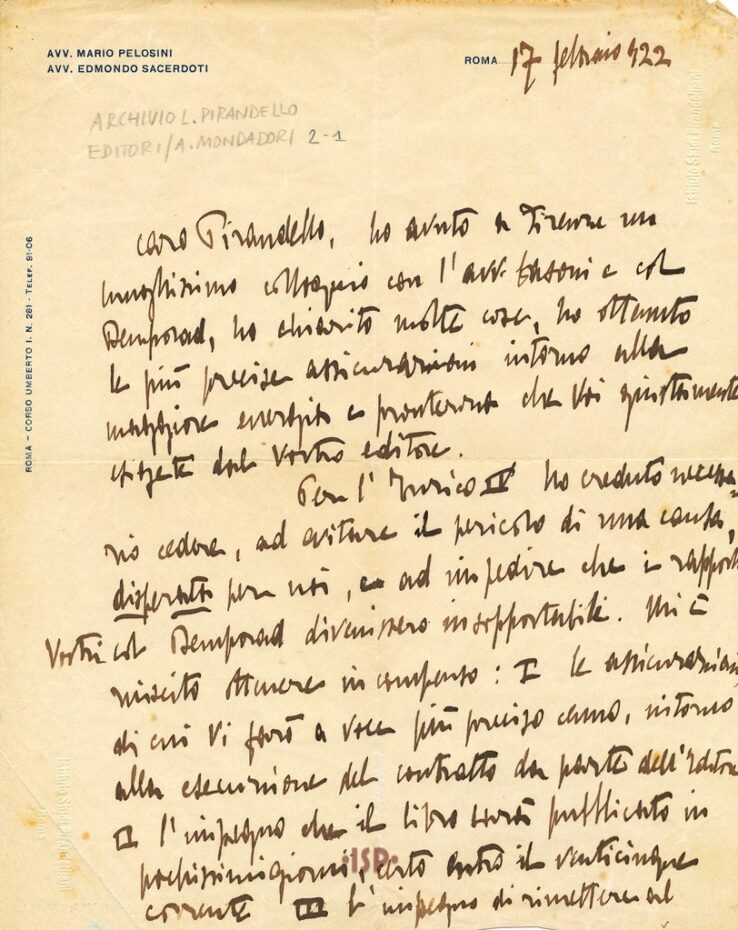 AVV. MARIO PELOSINI
AVV. EDMONDO SACERDOTI
ROMA 17 febbraio 922
ARCHIVIO L. PIRANDELLO
EDITORI/A. MONDADORI 2-1
ROMA - CORSO UMBERTO I. N. 281 - TELEF. 91-06
caro Pirandello, ho avuto a Firenze un
lunghissimo colloquio con l'avv. Casoni e col
Bemporad, ho chiarito molte cose, ho ottenuto
le più precise assicurazioni intorno alla
maggiore energia e prontezza che Voi giustamente
esigete dal Vostro editore.
Per l'Enrico IV ho creduto necessa-
rio cedere, ad evitare il pericolo di una causa,
disperata per noi, e ad impedire che i rapporti
Vostri col Bemporad divenissero insopportabili. Mi è
riuscito ottenere in compenso: I le assicurazioni
di cui Vi farò a voce più preciso cenno, intorno
alla esecuzione del contratto da parte dell'Editore
II l'impegno che il libro sarà pubblicato in
pochissimi giorni, certo entro il venticinque
corrente III l'impegno di rimettere al
ISP